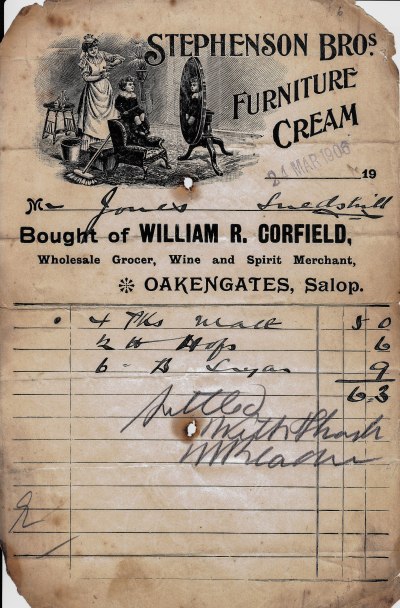 STEPHENSON BROS.
FURNITURE
CREAM
24 MAR 1906
19
Mr Jones Snedshill
Bought of WILLIAM R. CORFIELD,
Wholesale Grocer, Wine and Spirit Merchant,
OAKENGATES, Salop.
4 Pks Malt 5 0
2 lb Hops 6
6 - B Sugar 9
6.3
Settled
With Thanks